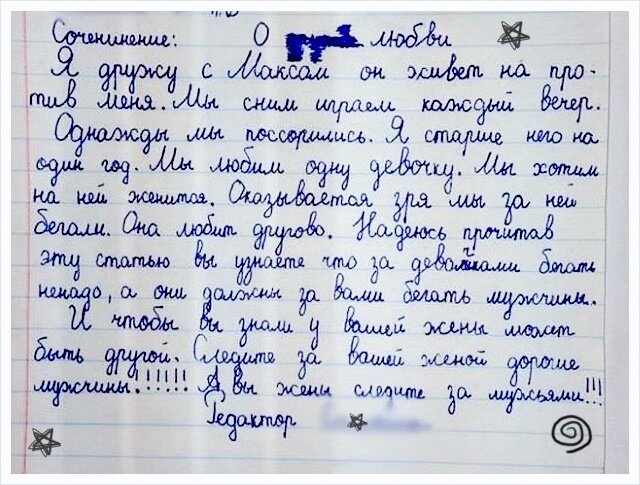 Соченинение: О любви
Я дружу с Максом он живет на про-
тив меня. Мы сним играем каждый вечер.
Однажды мы поссорились. Я старше него на
один год. Мы любим одну девочку. Мы хотим
на ней женится. Оказывается зря мы за ней
бегали. Она любит другово. Надеюсь прочитав
эту статью вы узнаете что за девачками бегать
ненадо, а они должны за вами бегать мужчины.
И чтобы вы знали у вашей жены может
быть другой. Следите за вашей женой дорогие
мужчины.!!!!! А вы жены следите за мужьями!!!
Редактор